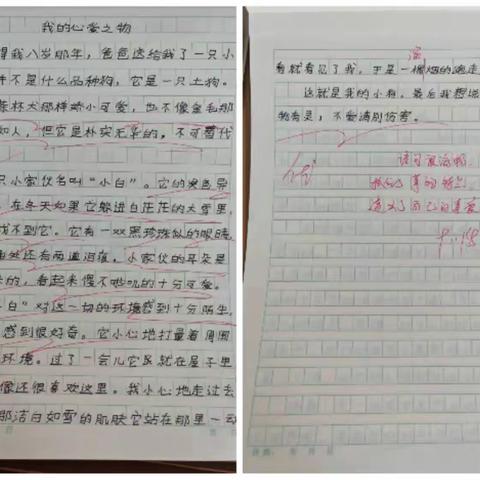 我的心爱之物
得我八岁那年，爸爸送给我了一只小
并不是什么品种狗，它是一只土狗。
茶杯犬那样娇小可爱，也不像金毛那
如人，但它是朴实无华的，不可替代
只小家伙名叫“小白”。它的
，在冬天如果它躲进白茫茫的大雪里，
找不到它。它有一双黑珍珠似的眼睛，
然还有两道泪痕。小家伙的耳朵是
的，看起来傻不啦叽的十分可爱。
白”对这一切的环境感到十分陌生，
感到很好奇。它小心地打量着周围
环境。过了一会儿它就在屋子里
像还很喜欢这里。我小心地走过去
那洁白如雪的肌肤它站在那里一动
溜
看就看见了我，于是一榴烟的跑走
这就是我的小狗，最后我想说
物有灵，不爱请别伤害。
语句